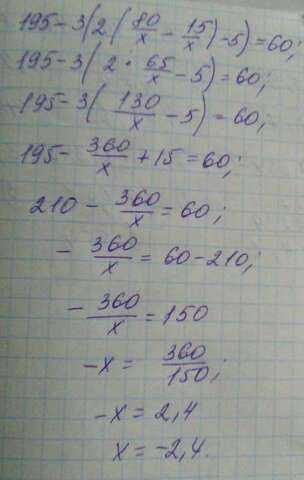 195-3(2(80/x-15/x)-5)=60;
195-3(2·65/x-5)=60;
195-3(130/x-5)=60;
195-360/x+15=60;
210-360/x=60;
-360/x=60-210;
-360/x=150
-x=360/150;
-x=2,4
x=-2,4.